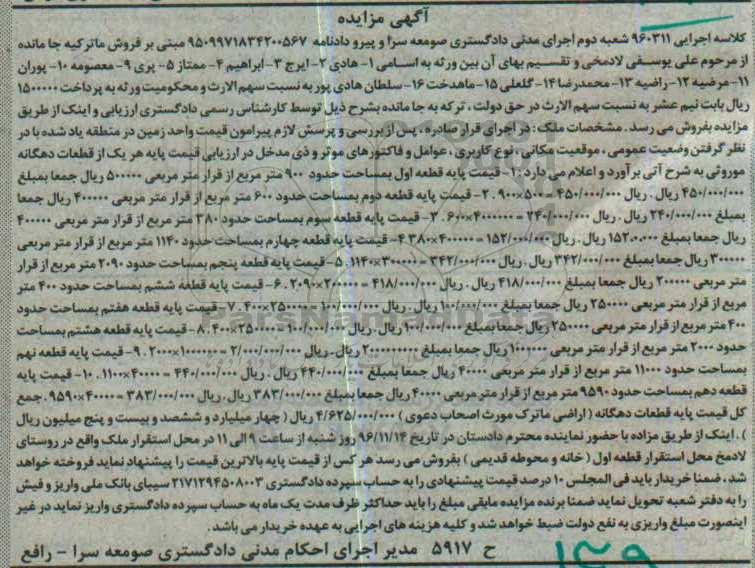 آگهی مزایده
کلاسه اجرایی ۹۶۰۳۱۱ شعبه دوم اجرای مدنی دادگستری صومعه سرا و پیرو دادنامه ۹۵۰۹۹۷۱۸۳۴۲۰۰۵۶۷ مبنی بر فروش ماترکیه جا مانده
از مرحوم علی یوسفی لادمخی و تقسیم بهای آن بین ورثه به اسامی ۱- هادی ۲- ایرج ۳- ابراهیم ۴- ممتاز ۵- پری ۹- معصومه ۱۰- پوران
۱۱- مرضیه ۱۲- راضیه ۱۳- محمدرضا ۱۴- گلعلی ۱۵- ماهدخت ۱۶- سلطان هادی پور به نسبت سهم الارث و محکومیت ورثه به پرداخت ۱۵۰۰۰۰۰
ریال بابت نیم عشر به نسبت سهم الارث در حق دولت ، ترکه به جا مانده بشرح ذیل توسط کارشناس رسمی دادگستری ارزیابی و اینک از طریق
مزایده بفروش می رسد . مشخصات ملک : در اجرای قرار صادره ، پس از بررسی و پرسش لازم پیرامون قیمت واحد زمین در منطقه یاد شده با در
نظر گرفتن وضعیت عمومی ، موقعیت مکانی ، نوع کاربری ، عوامل و فاکتورهای موثر و ذی مدخل در ارزیابی قیمت پایه هر یک از قطعات دهگانه
موروثی به شرح آتی بر آورد و اعلام می دارد : ۱- قیمت پایه قطعه اول بمساحت حدود ۹۰۰ متر مربع از قرار متر مربعی ۵۰۰۰۰۰ ریال جمعا بمبلغ
۴۵۰/۰۰۰/۰۰۰ ریال . ریال ۴۵۰/۰۰۰/۰۰۰=۵۰۰۰۰۰×۹۰۰ . ۲- قیمت پایه قطعه دوم بمساحت حدود ۶۰۰ متر مربع از قرار متر مربعی ۴۰۰۰۰۰ ریال جمعا
بمبلغ ۲۴۰/۰۰۰/۰۰۰ ریال . ریال ۲۴۰/۰۰۰/۰۰۰=۴۰۰۰۰۰×۶۰۰ . ۳- قیمت پایه قطعه سوم بمساحت حدود ۳۸۰ متر مربع از قرار متر مربعی ۴۰۰۰۰۰
ریال جمعا بمبلغ ۱۵۲۰،۰۰۰ ریال . ریال ۱۵۲/۰۰۰/۰۰۰=۴۰۰۰۰۰×۳۸۰ ۴- قیمت پایه قطعه چهارم بمساحت حدود ۱۱۴۰ متر مربع از قرار متر مربعی
۳۰۰۰۰۰ ریال جمعا بمبلغ ۳۴۲/۰۰۰/۰۰۰ ریال . ریال ۳۴۲/۰۰۰/۰۰۰=۳۰۰۰۰۰×۱۱۴۰ . ۵- قیمت پایه قطعه پنجم بمساحت حدود ۲۰۹۰ متر مربع از قرار
متر مربعی ۲۰۰۰۰۰ ریال جمعا بمبلغ ۴۱۸/۰۰۰/۰۰۰ ریال . ریال ۴۱۸/۰۰۰/۰۰۰=۲۰۰۰۰۰×۲۰۹۰ . ۶- قیمت پایه قطعه ششم بمساحت حدود ۴۰۰ متر
مربع از قرار متر مربعی ۲۵۰۰۰۰ ریال جمعا بمبلغ ۱۰۰/۰۰۰/۰۰۰ ریال . ریال ۱۰۰/۰۰۰/۰۰۰=۲۵۰۰۰۰×۴۰۰ . ۷- قیمت پایه قطعه هفتم بمساحت حدود
۴۰۰ متر مربع از قرار متر مربعی ۲۵۰۰۰۰ ریال جمعا بمبلغ ۱۰۰/۰۰۰/۰۰۰ ریال . ریال ۱۰۰/۰۰۰/۰۰۰=۲۵۰۰۰۰×۴۰۰ . ۸- قیمت پایه قطعه هشتم بمساحت
حدود ۲۰۰۰ متر مربع از قرار متر مربعی ۱۰۰۰۰۰۰ ریال جمعا بمبلغ ۲۰۰۰۰۰۰۰۰۰ ریال . ریال ۲/۰۰۰/۰۰۰/۰۰۰=۱۰۰۰۰۰۰×۲۰۰۰ . ۹- قیمت پایه قطعه نهم
بمساحت حدود ۱۱۰۰۰ متر مربع از قرار متر مربعی ۴۰۰۰۰ ریال جمعا بمبلغ ۴۴۰/۰۰۰/۰۰۰ ریال . ریال ۴۴۰/۰۰۰/۰۰۰=۴۰۰۰۰×۱۱۰۰ . ۱۰- قیمت پایه
قطعه دهم بمساحت حدود ۹۵۹۰ متر مربع از قرار متر مربعی ۴۰۰۰۰ ریال جمعا بمبلغ ۳۸۳/۰۰۰/۰۰۰ ریال . ریال ۳۸۳/۰۰۰/۰۰۰=۴۰۰۰۰×۹۵۹۰ . جمع
کل قیمت پایه قطعات دهگانه ( اراضی ماترک مورث اصحاب دعوی ) ۴/۶۲۵/۰۰۰/۰۰۰ ریال ( چهار میلیارد و ششصد و بیست و پنج میلیون ریال
) . اینک از طریق مزاده با حضور نماینده محترم دادستان در تاریخ ۹۶/۱۱/۱۴ روز شنبه از ساعت ۹ الی ۱۱ در محل استقرار ملک واقع در روستای
لادمخ محل استقرار قطعه اول ( خانه و محوطه قدیمی ) بفروش می رسد هر کس از قیمت پایه بالاترین قیمت را پیشنهاد نماید فروخته خواهد
شد ، ضمنا خریدار باید فی المجلس ۱۰ درصد قیمت پیشنهادی را به حساب سپرده دادگستری ۲۱۷۱۲۹۴۵۰۸۰۰۳ سیبای بانک ملی واریز و فیش
را به دفتر شعبه تحویل نماید ضمنا برنده مزایده مابقی مبلغ را باید حداکثر ظرف مدت یک ماه به حساب سپرده دادگستری واریز نماید در غیر
اینصورت مبلغ واریزی به نفع دولت ضبط خواهد شد و کلیه هزینه های اجرایی به عهده خریدار می باشد .
ح ۵۹۱۷ مدیر اجرای احکام مدنی دادگستری صومعه سرا - رافع
۱۴۹
ParsNamadData